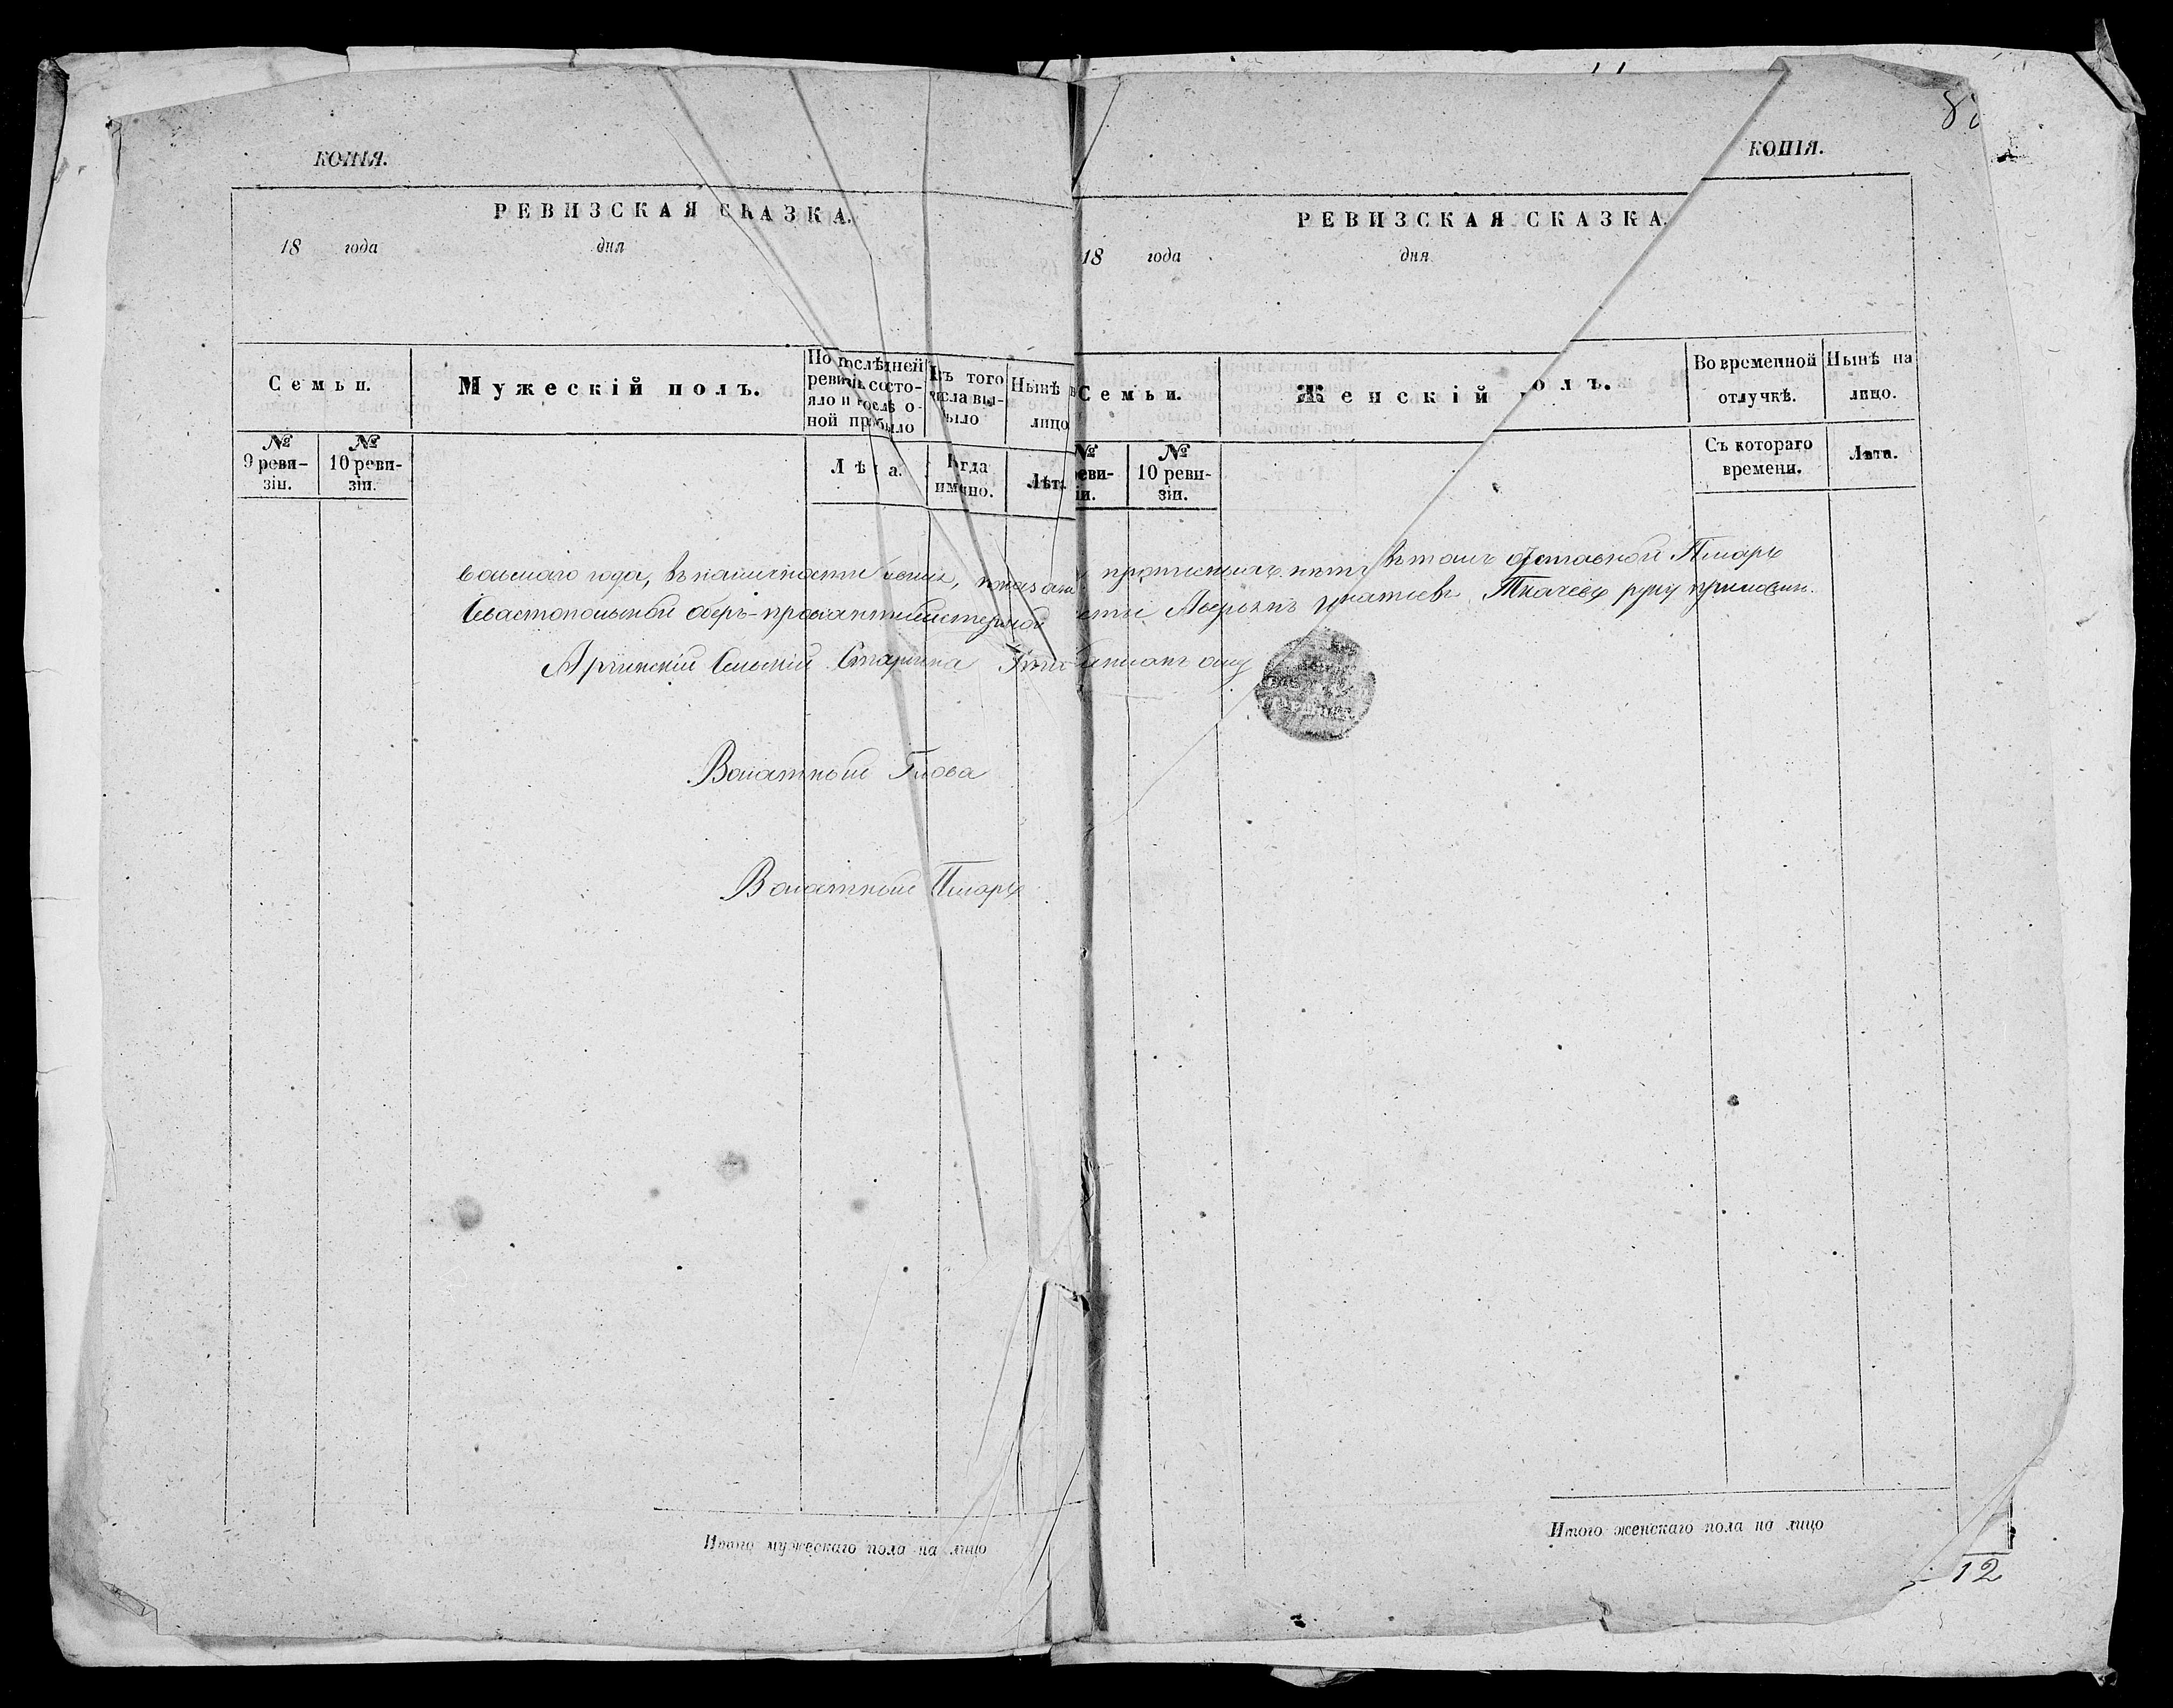 КОПІЯ.
РЕВИЗСКАЯ СКАЗКА.
18 года дня
Семьи.
Мужескій полъ.
По послѣдней ревизіи состояло и послѣ оной прибыло
Изъ того числа выбыло
Нынѣ на лицо
№ 9 ревизіи.
№ 10 ревизіи.
Лѣта.
Когда именно.
Лѣта.
восьмаго года, въ наличности коихъ, показан
Севастопольской оберъ-провіантмейстерской
Аргинскій Сельскій Старшина
Волостный Голова
Волостный Писарь
Итого мужескаго пола на лицо
8
КОПІЯ.
РЕВИЗСКАЯ СКАЗКА.
18 года дня
Семьи.
Женскій полъ.
Во временной отлучкѣ.
Нынѣ на лицо.
№ реви-іи.
№ 10 ревизіи.
Съ котораго времени.
Лѣта.
прописныхъ нѣтъ въ томъ отставной Писарь
Аверьянъ Игнатьевъ Ткачевъ руку приложилъ.
Итого женскаго пола на лицо
12